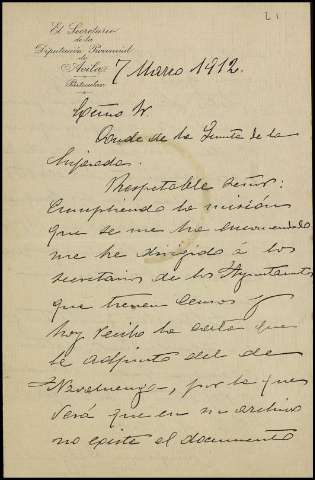 El Secretario
de la
Diputación Provincial
de
Avila
Particular
7 Marzo 1912.
Excmo Sr.
Conde de la
Respetable Señor:
Cumpliendo la misión
que se me ha encomendado
me he dirigido á los
secretarios de los Ayuntamientos
que tienen censos y
hoy recibo la carta que
le adjunto del de
Navaluenga, por la que
verá que en su archivo
no existe el documento